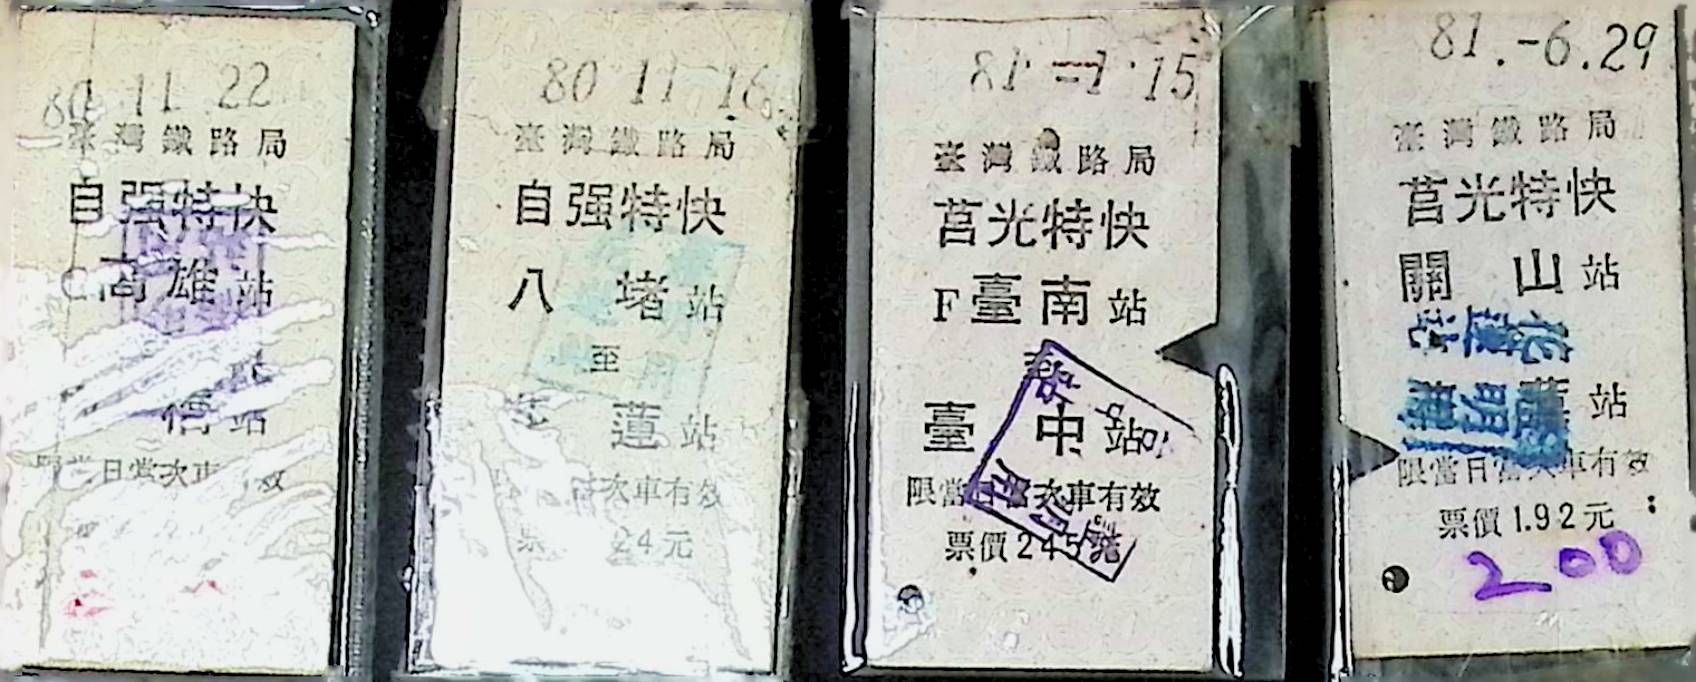 80 11 22
臺灣鐵路局
自强特快
高雄站
站
限當日當次車有效
80 11 16
臺灣鐵路局
自强特快
八堵站
至
蓮站
次車有效
24元
81 -1 15
臺灣鐵路局
莒光特快
F臺南站
至
臺中站
限當日當次車有效
票價245
81.-6.29
臺灣鐵路局
莒光特快
關山站
花蓮站
證明專
站
限當日當次車有效
票價1.92元
200